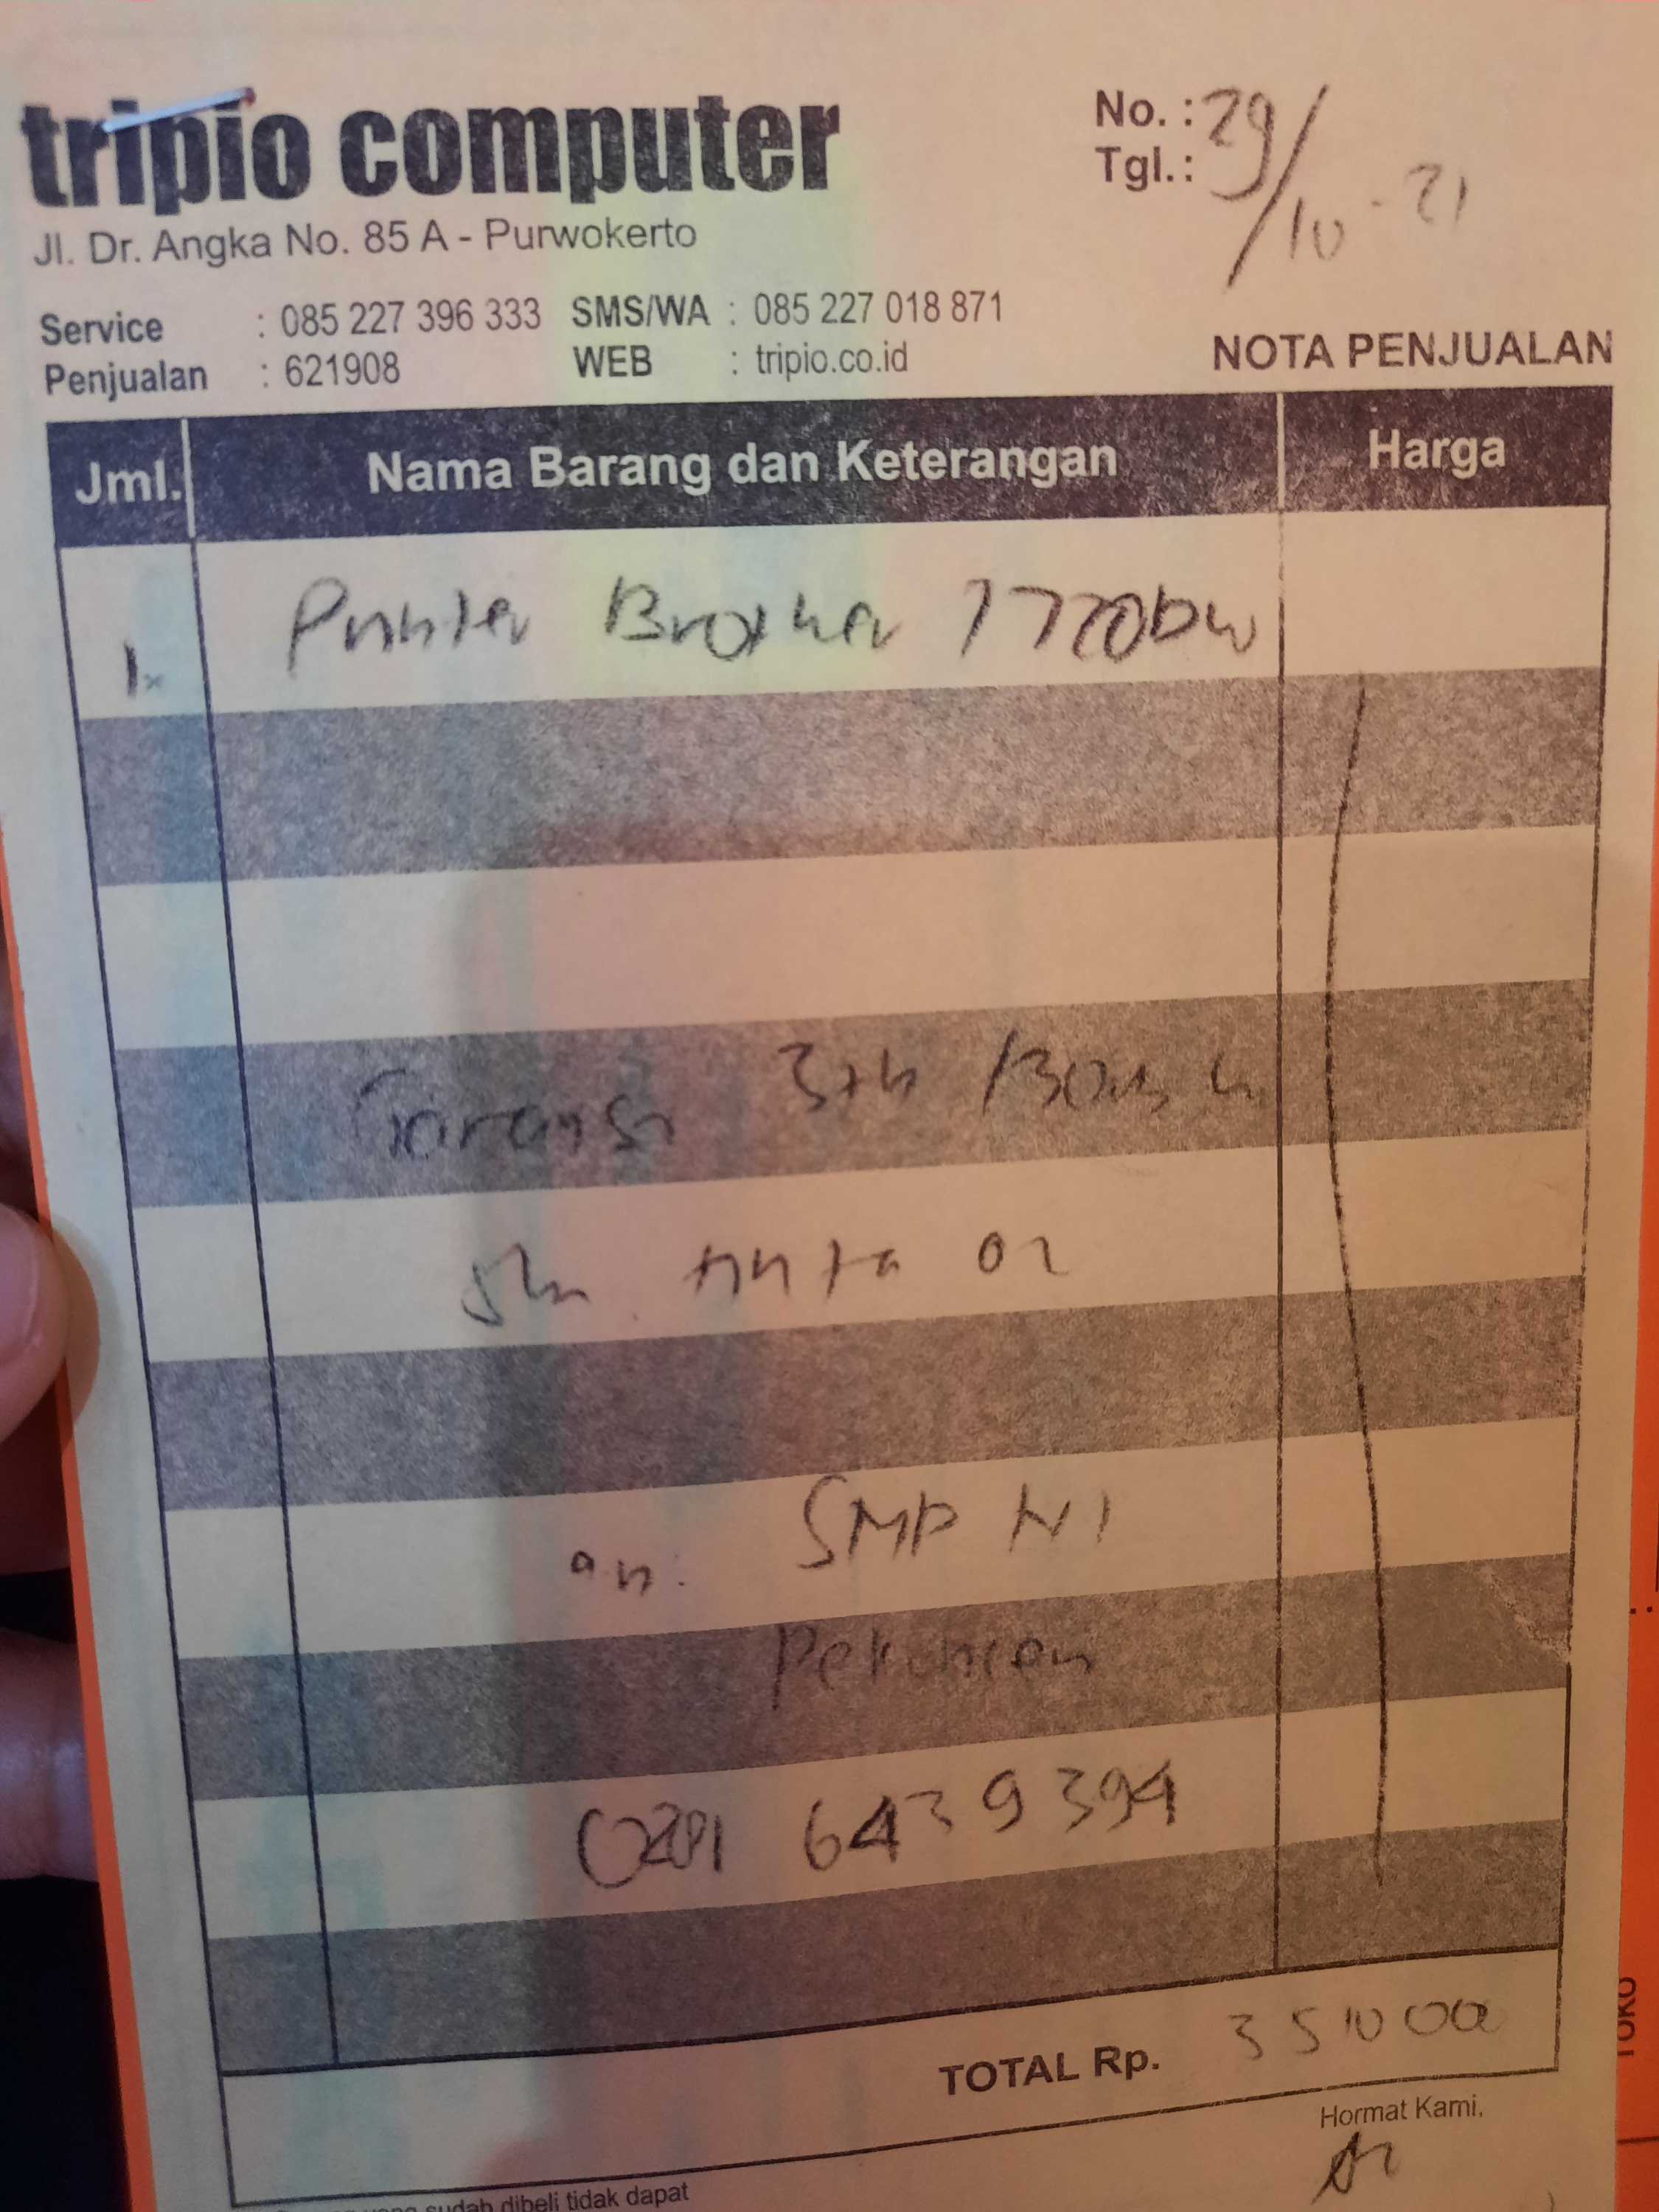 tripio computer
Jl. Dr. Angka No. 85 A - Purwokerto
Service : 085 227 396 333 SMS/WA : 085 227 018 871
Penjualan : 621908 WEB : tripio.co.id
No. :
Tgl. : 29/10-21
NOTA PENJUALAN
Jml. Nama Barang dan Keterangan Harga
1x Printer Brother T720DW
Garansi 3th
tinta
an. SMP N 1
Pekuncen
0281 6439394
TOTAL Rp. 3510000
Hormat Kami,
yang sudah dibeli tidak dapat
TOKO